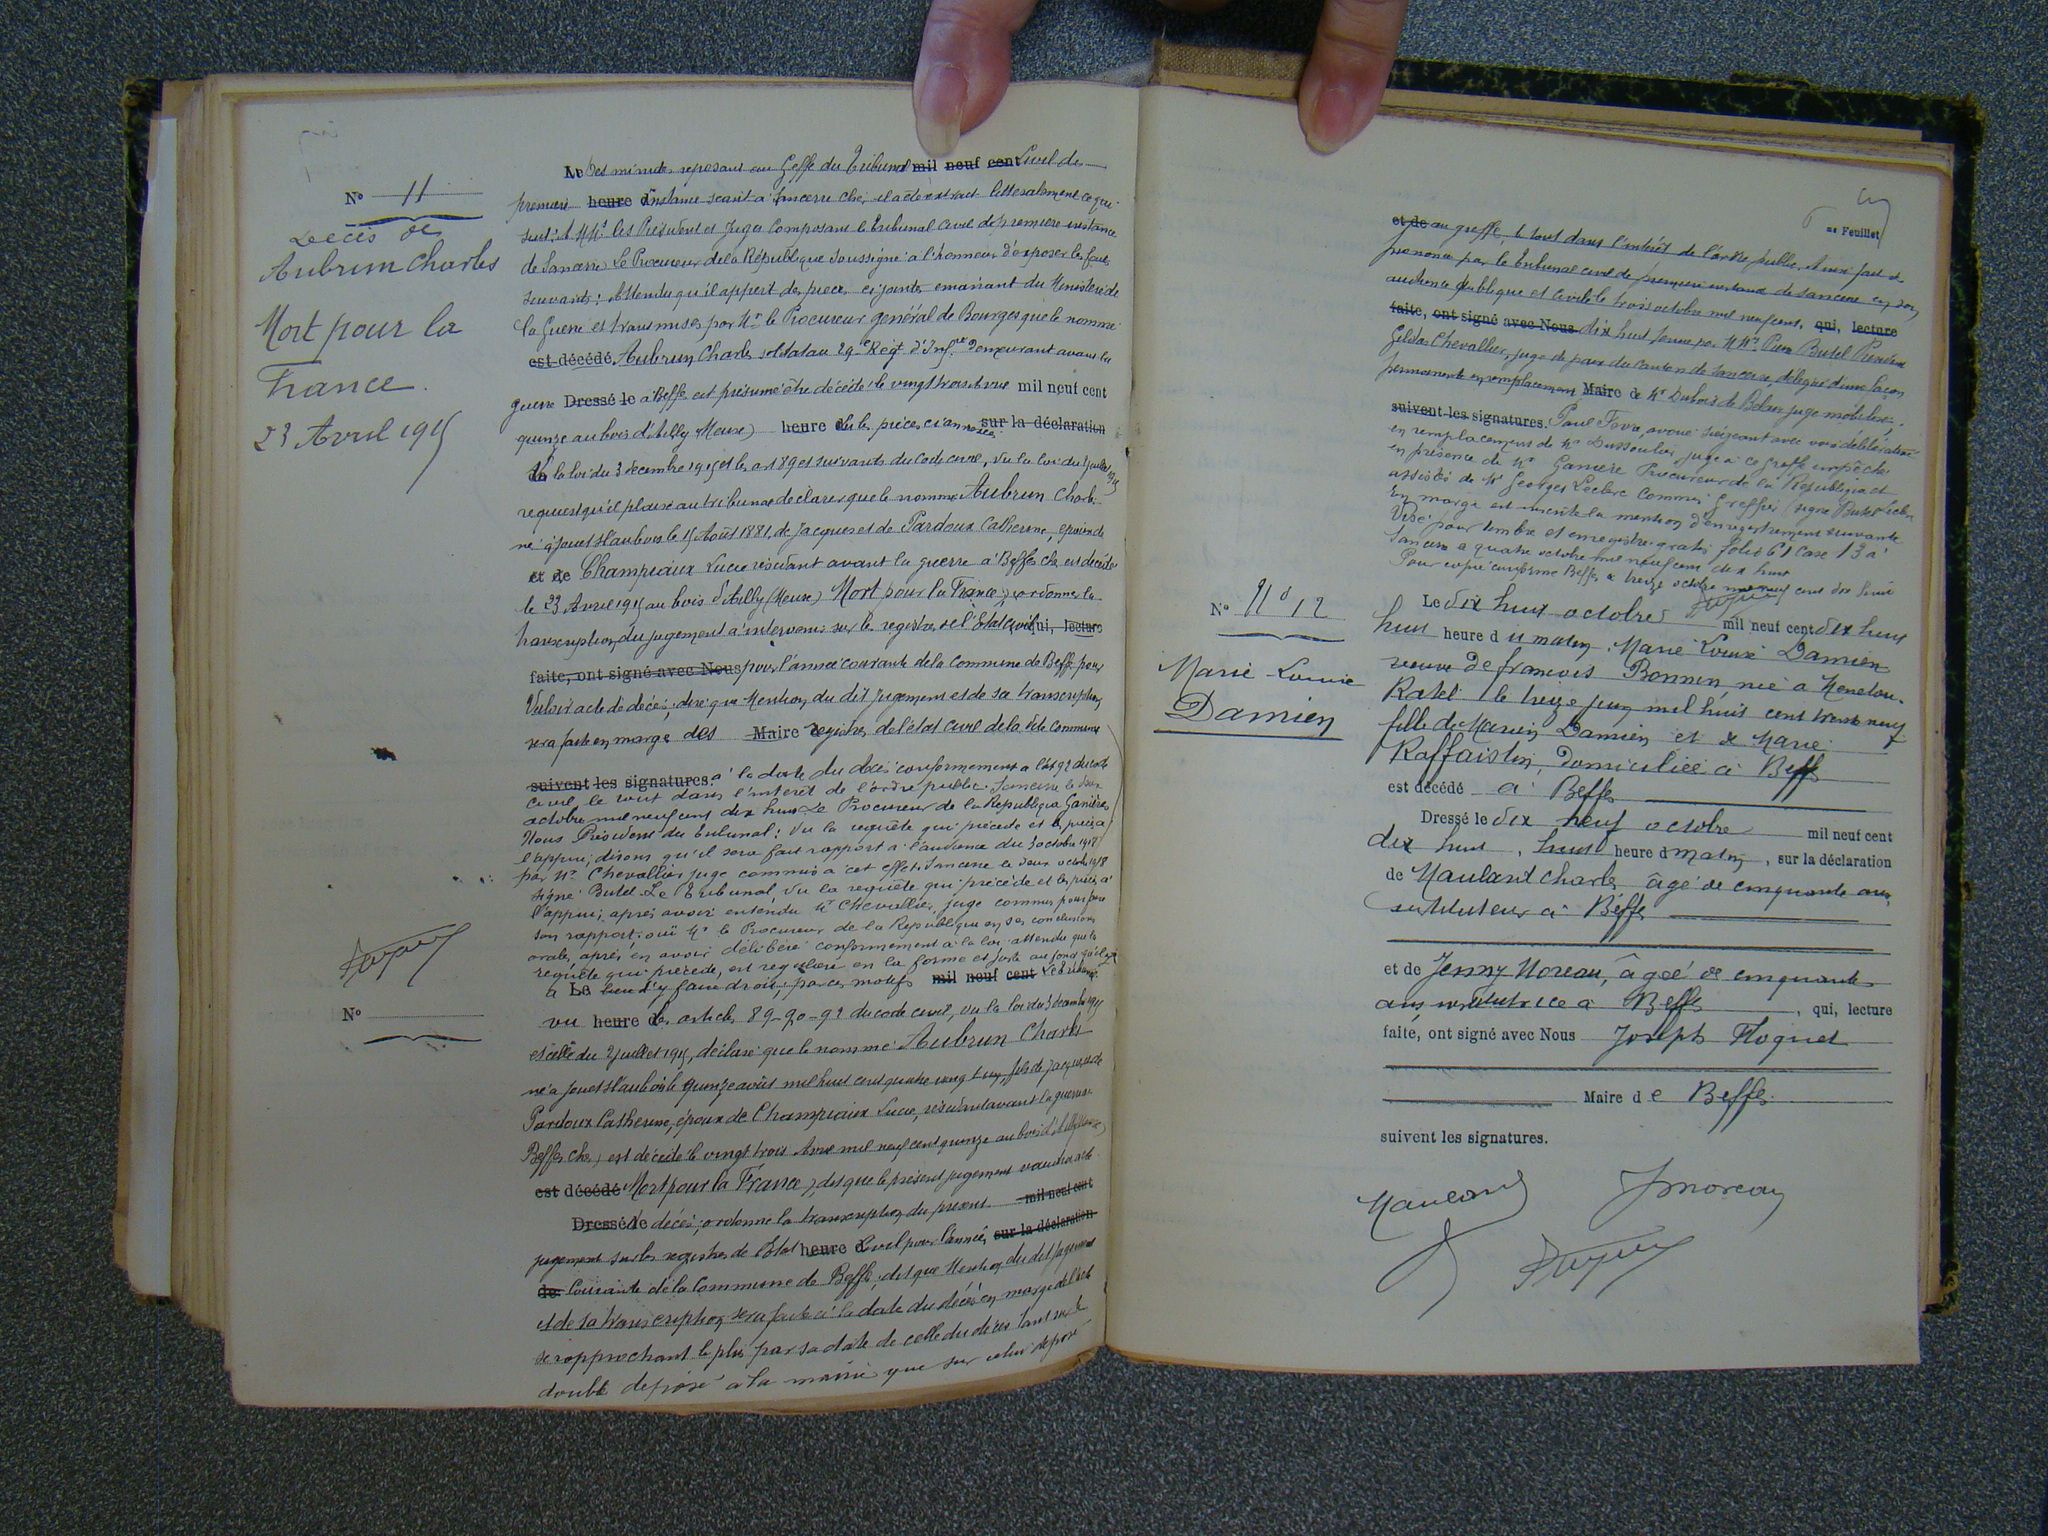 N° 11
Décès de
Aubrun Charles
Mort pour la
France.
23 Avril 1915
Le Des minutes reposant au Greffe du Tribunal mil neuf cent Civil de
première heure d'Instance séant à Sancerre Cher, il a été extrait littéralement ce qui
suit: A MMrs les Président et Juges composant le tribunal civil de première instance
de Sancerre Le Procureur de la République soussigné a l'honneur d'exposer les faits
suivants: Attendu qu'il appert des pièces ci jointes émanant du Ministère de
la Guerre et transmises par Mr le Procureur général de Bourges que le nommé
est décédé Aubrun Charles soldat au 29e Regt d'Infrie Demeurant avant la
guerre Dressé le à Beffes est présumé être décédé le vingt trois Avril mil neuf cent
quinze au bois d'Ailly (Meuse) heure d Vu les pièces ci annexées sur la déclaration
de Vu la loi du 3 décembre 1915 et les art 89 et suivants du code civil, Vu la loi du 2 juillet 1915
requiert qu'il plaise au tribunal déclarer que le nommé Aubrun Charles
né à Jouet s/l'aubois le 15 Août 1881, de Jacques et de Pardoux Catherine, époux de
et de Champeaux Lucie résidant avant la guerre à Beffes cher est décédé
le 23 Avril 1915 au bois d'Ailly (Meuse) Mort pour la France; ordonner la
transcription du jugement à intervenir sur le registre de l'Etat civil qui, lecture
faite, ont signé avec Nous pour l'année courante de la Commune de Beffes pour
Valoir acte de décès, dire que Mention du dit jugement et de sa transcription
sera faite en marge des Maire registres de l'état civil de la dite commune
suivent les signatures. à la date du décès conformément à l'art 92 du code
civil, le tout dans l'intérêt de l'ordre public. Sancerre le deux
octobre mil neuf cent dix huit Le Procureur de la République Ganières
Nous Président du tribunal: Vu la requête qui précède et les pièces à
l'appui; disons qu'il sera fait rapport à l'audience du 3 octobre 1918
par Mr Chevallier juge commis à cet effet. Sancerre le deux octobre 1918
signé Butel. Le Tribunal Vu la requête qui précède et les pièces à
l'appui; après avoir entendu Mr Chevallier, juge commis pour faire
son rapport; ouï Mr le Procureur de la République en ses conclusions
orales, après en avoir délibéré conformément à la loi; attendu que la
requête qui précède, est régulière en la forme et juste au fond qu'il y
a Le lieu d'y faire droit; par ces motifs mil neuf cent Le tribunal
N°
vu heure d les articles 89-90-92 du code civil, vu la loi du 3 décembre 1915
et celle du 2 juillet 1915, déclare que le nommé Aubrun Charles
né à Jouet s/l'aubois le quinze août mil huit cent quatre vingt un, fils de Jacques et de
Pardoux Catherine, époux de Champeaux Lucie, résidant avant la guerre à
Beffes cher, est décédé le vingt trois Avril mil neuf cent quinze au bois d'Ailly (Meuse)
est décédé Mort pour la France; dit que le présent jugement vaudra acte
Dressé le de décès; ordonne la transcription du présent mil neuf cent
jugement sur les registres de l'Etat heure d civil pour l'année, sur la déclaration
de courante de la Commune de Beffes; dit que Mention du dit jugement
et de sa transcription sera faite à la date du décès en marge de l'acte
se rapprochant le plus par sa date de celle du décès tant sur le
double déposé à la mairie que sur celui déposé
me Feuillet
et de au greffe, le tout dans l'intérêt de l'ordre public, Ainsi fait et
prononcé par le tribunal civil de première instance de Sancerre en son
audience publique et civile le trois octobre mil neuf cent, qui, lecture
faite, ont signé avec Nous dix huit tenue par MMrs Butel Président
Gildas Chevallier, juge de paix du canton de Sancerre, délégué d'une façon
permanente en remplacement Maire de Mr Dubois de Belair juge mobilisé;
suivent les signatures. Paul Favre, avoué siégeant avec voix délibérative
en remplacement de Mr Dussoulier juge à ce greffe empêché
en présence de Mr Ganière Procureur de la République et
assistés de Mr Georges Leclerc Commis Greffier (signé Butel Leclerc
En marge est inscrite la mention d'enregistrement suivante
Visé pour timbre et enregistré gratis folio 61 case 13 à
Sancerre a quatre octobre mil neuf cent dix huit
Pour copie conforme Beffes le treize octobre mil neuf cent dix huit
N° 12
Marie Louise
Damien
Le dix huit octobre mil neuf cent dix huit
huit heure d u matin, Marie Louise Damien
veuve de françois Bonnin née à Menetou
Ratel le treize juin mil huit cent trente neuf
fille de Marien Damien et de Marie
Raffaistin, domiciliée à Beffes
est décédé à Beffes
Dressé le dix neuf octobre mil neuf cent
dix huit, huit heure d matin, sur la déclaration
de Maulard Charles âgé de cinquante ans
instituteur à Beffes
et de Jenny Moreau, âgée de cinquante
ans institutrice à Beffes, qui, lecture
faite, ont signé avec Nous Joseph Floquet
Maire d e Beffes.
suivent les signatures.
Maulard
J moreau